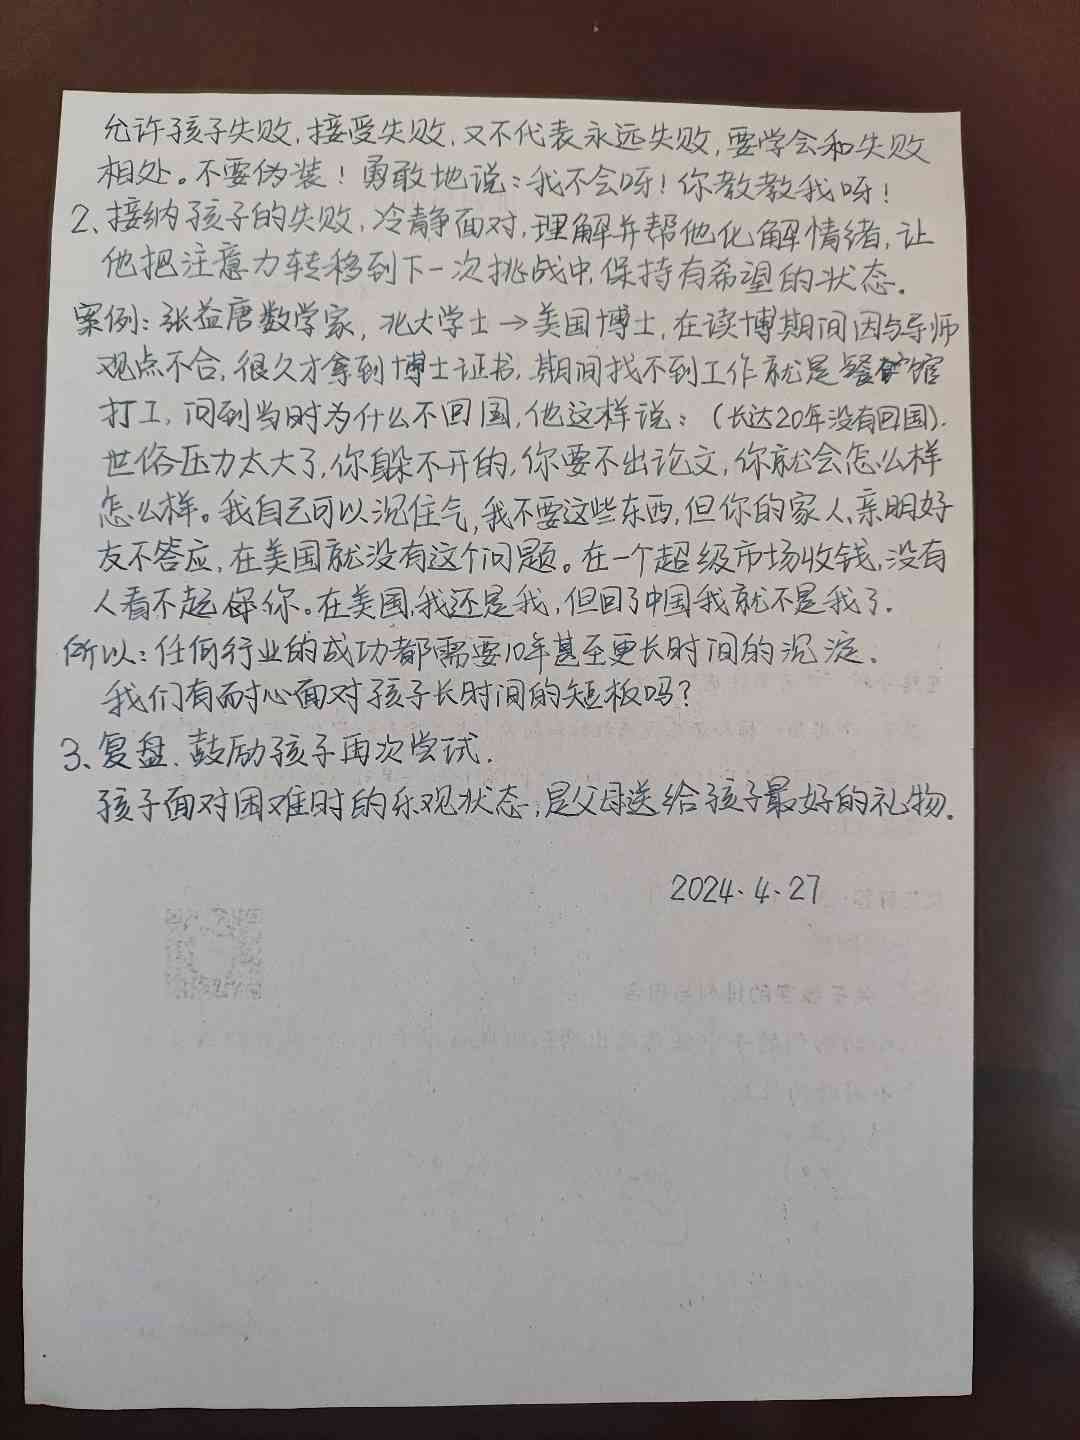 允许孩子失败,接受失败,又不代表永远失败,要学会和失败
相处。不要伪装!勇敢地说:我不会呀!你教教我呀!
2、接纳孩子的失败,冷静面对,理解并帮他化解情绪,让
他把注意力转移到下一次挑战中,保持有希望的状态.
案例:张益唐数学家,北大学士→美国博士,在读博期间因与导师
观点不合,很久才拿到博士证书,期间找不到工作就是餐馆
打工,问到当时为什么不回国,他这样说:(长达20年没有回国).
世俗压力太大了,你躲不开的,你要不出论文,你就会怎么样
怎么样。我自己可以沉住气,我不要这些东西,但你的家人、亲朋好
友不答应,在美国就没有这个问题。在一个超级市场收钱,没有
人看不起你。在美国,我还是我,但回了中国我就不是我了.
所以:任何行业的成功都需要10年甚至更长时间的沉淀.
我们有耐心面对孩子长时间的短板吗?
3、复盘.鼓励孩子再次尝试.
孩子面对困难时的乐观状态,是父母送给孩子最好的礼物.
2024.4.27